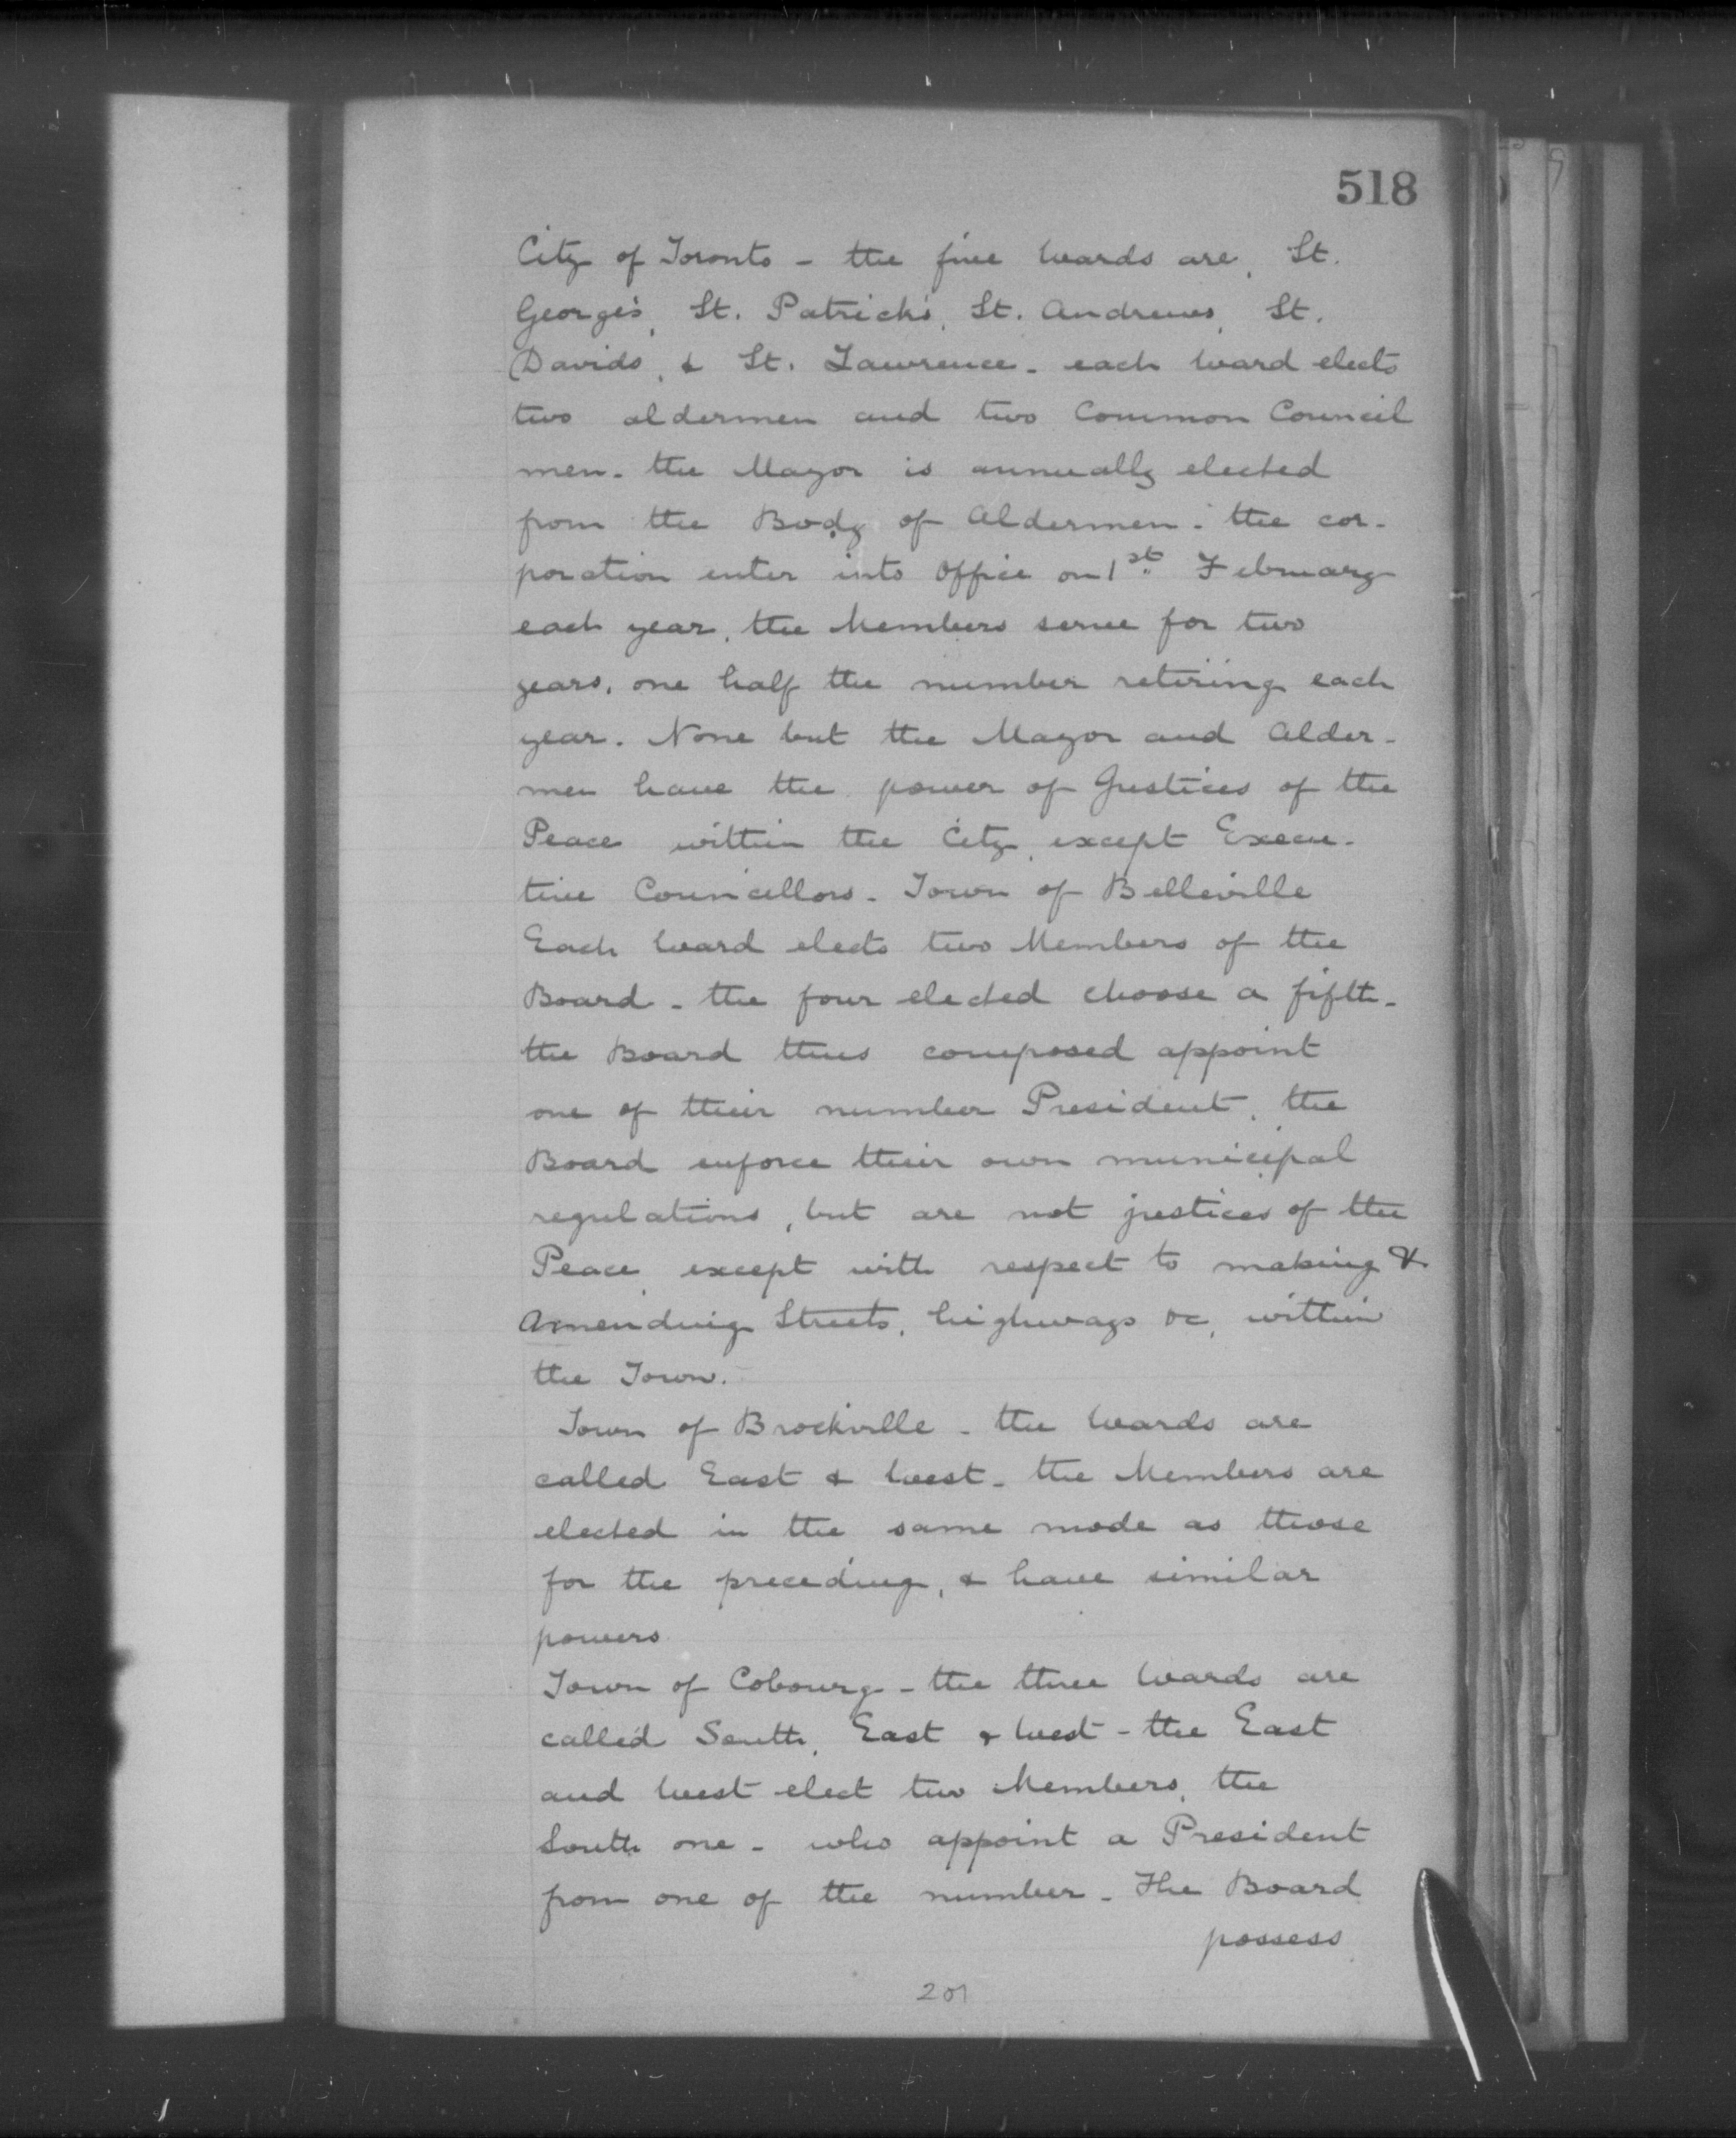 518
City of Toronto - the five wards are, St.
George's, St. Patrick's, St. Andrews, St.
Davids, & St. Lawrence - each ward elects
two aldermen and two Common Council
men - the Mayor is annually elected
from the Body of Aldermen - the cor-
poration enter into Office on 1st February
each year, the Members serve for two
years, one half the number retiring each
year. None but the Mayor and Alder-
men have the power of Justices of the
Peace within the City, except Execu-
tive Councellors - Town of Belleville
Each ward elects two Members of the
Board - the four elected choose a fifth -
the Board thus composed appoint
one of their number President, the
Board enforce their own municipal
regulations, but are not justices of the
Peace, except with respect to making &
Amending Streets, highways &c, within
the Town.
Town of Brockville - the wards are
called East & West - the Members are
elected in the same mode as those
for the preceding, & have similar
powers
Town of Cobourg - the three Wards are
called South, East & West - the East
and West elect two Members, the
South one - who appoint a President
from one of the number - The Board
possess
201